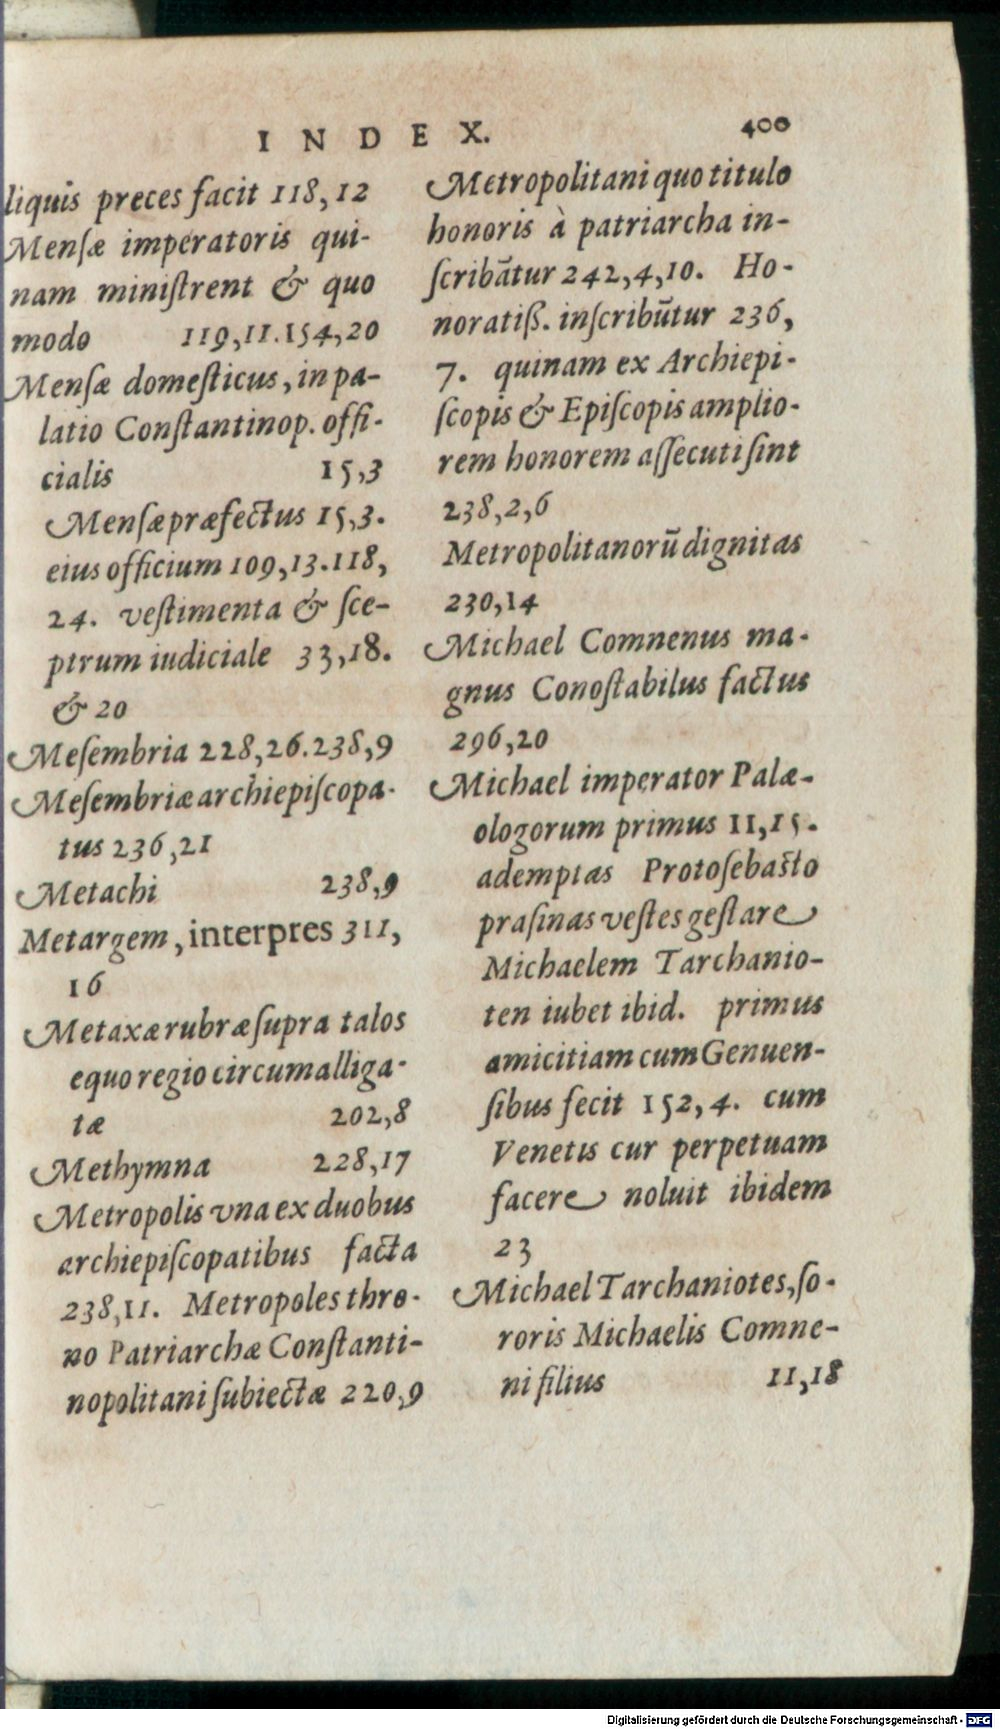 INDEX. 400
liquis preces facit 118,12
Mensæ imperatoris qui-
nam miniſtrent & quo
modo 119,11.154,20
Menſæ domeſticus, in pa-
latio Conſtantinop. offi-
cialis 15,3
Menſæ præfectus 15,3.
eius officium 109,13.118,
24. veſtimenta & ſce-
ptrum iudiciale 33,18.
& 20
Meſembria 228,26.238,9
Meſembriæ archiepiſcopa-
tus 236,21
Metachi 238,9
Metargem, interpres 311,
16
Metaxæ rubræ ſupra talos
equo regio circumalliga-
tæ 202,8
Methymna 228,17
Metropolis vna ex duobus
archiepiſcopatibus facta
238,11. Metropoles thro-
no Patriarchæ Conſtanti-
nopolitani ſubiectæ 220,9
Metropolitani quo titulo
honoris à patriarcha in-
ſcribãtur 242,4,10. Ho-
noratiß. inſcribũtur 236,
7. quinam ex Archiepi-
ſcopis & Epiſcopis amplio-
rem honorem aſſecuti ſint
238,2,6
Metropolitanorũ dignitas
230,14
Michael Comnenus ma-
gnus Conoſtabilus factus
296,20
Michael imperator Palæ-
ologorum primus 11,15.
ademptas Protoſebaſto
praſinas veſtes geſtare
Michaelem Tarchanio-
ten iubet ibid. primus
amicitiam cum Genuen-
ſibus fecit 152,4. cum
Venetis cur perpetuam
facere noluit ibidem
23
Michael Tarchaniotes, ſo-
roris Michaelis Comne-
ni filius 11,18
Digitalisierung gefördert durch die Deutsche Forschungsgemeinschaft - DFG